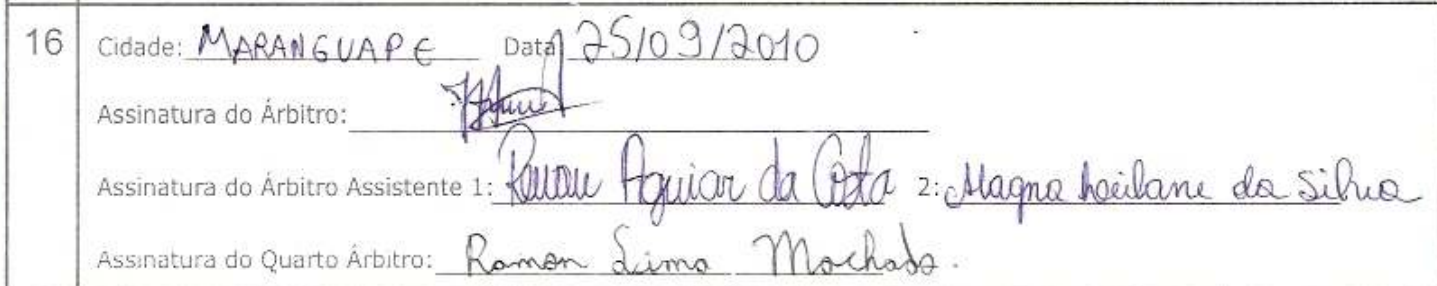 16 Cidade: MARANGUAPE Data 25/09/2010
Assinatura do Árbitro:
Assinatura do Árbitro Assistente 1: Renan Aguiar da Costa 2: Magna Leilane da Silva
Assinatura do Quarto Árbitro: Ramon Lima Machado.